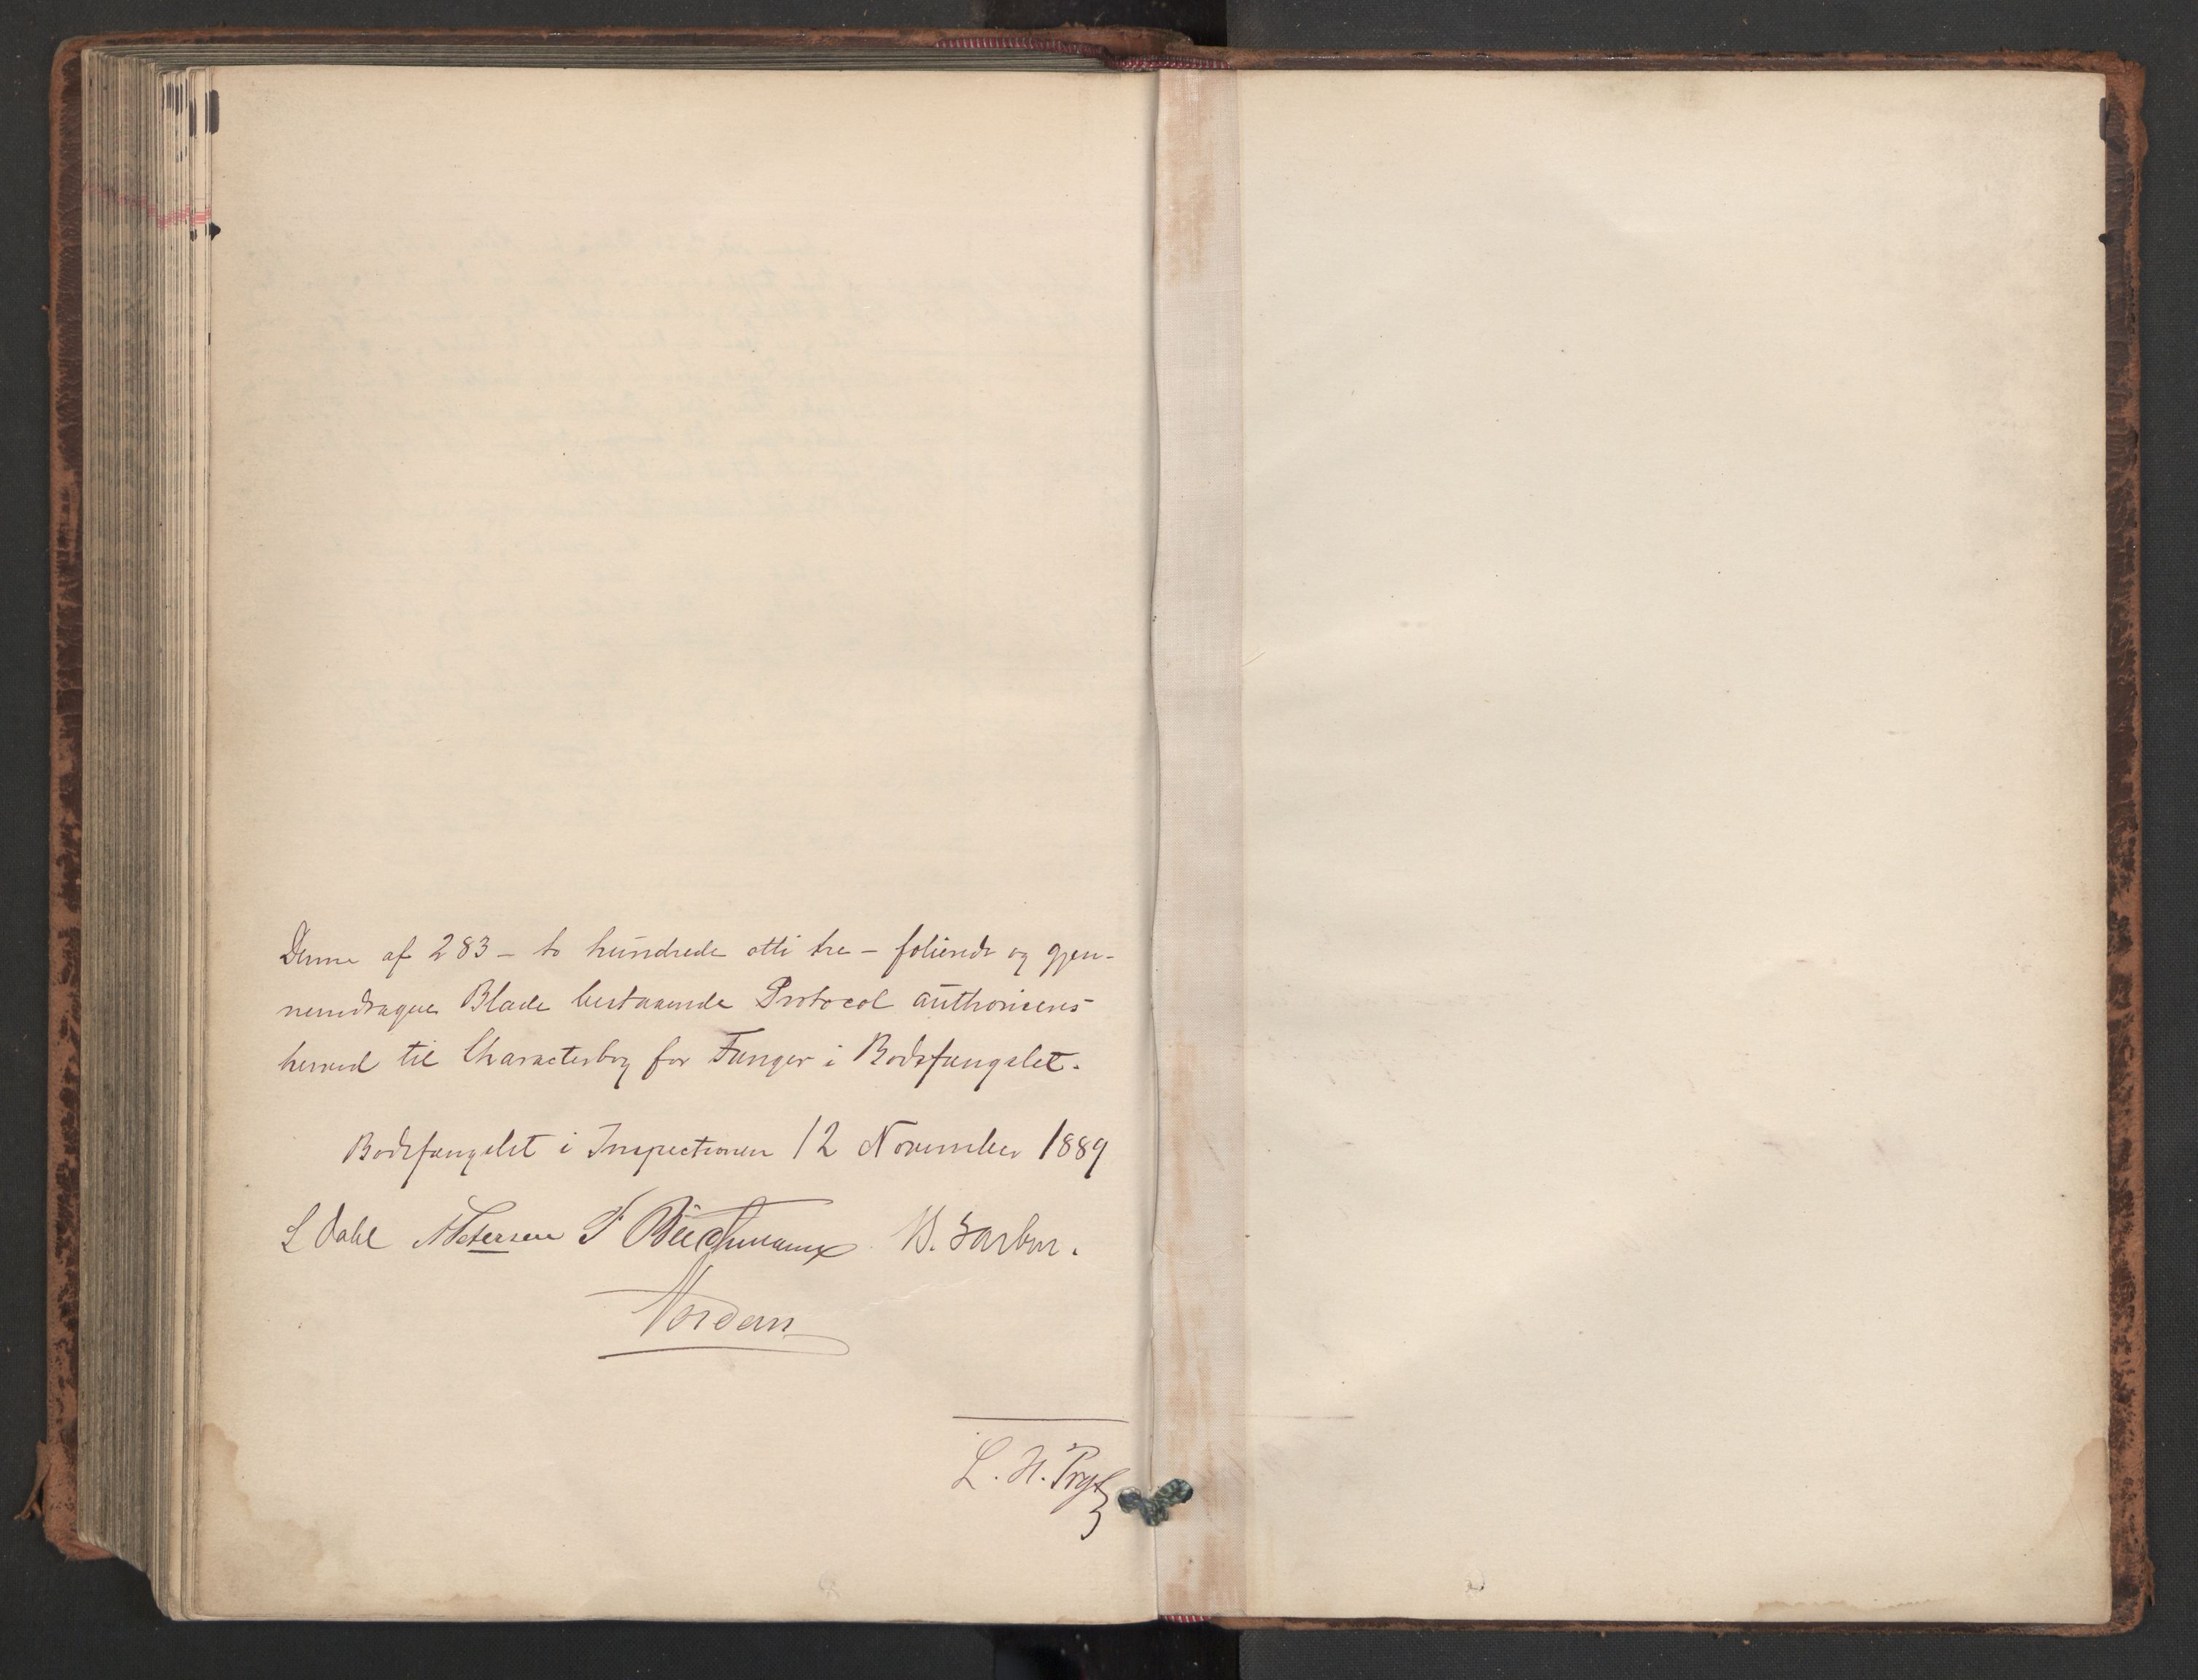 Denne af 283 – to hundrede otti tre – folierede og gjen-
nemdragne Blade bestaaende Protocol authoriseres
herved til Characterbog for Fanger i Bodsfængslet.
Bodsfængslet i Inspectionen 12 November 1889
L Dahl APetersen F Büchmann
Nordan
L. H. Prytz